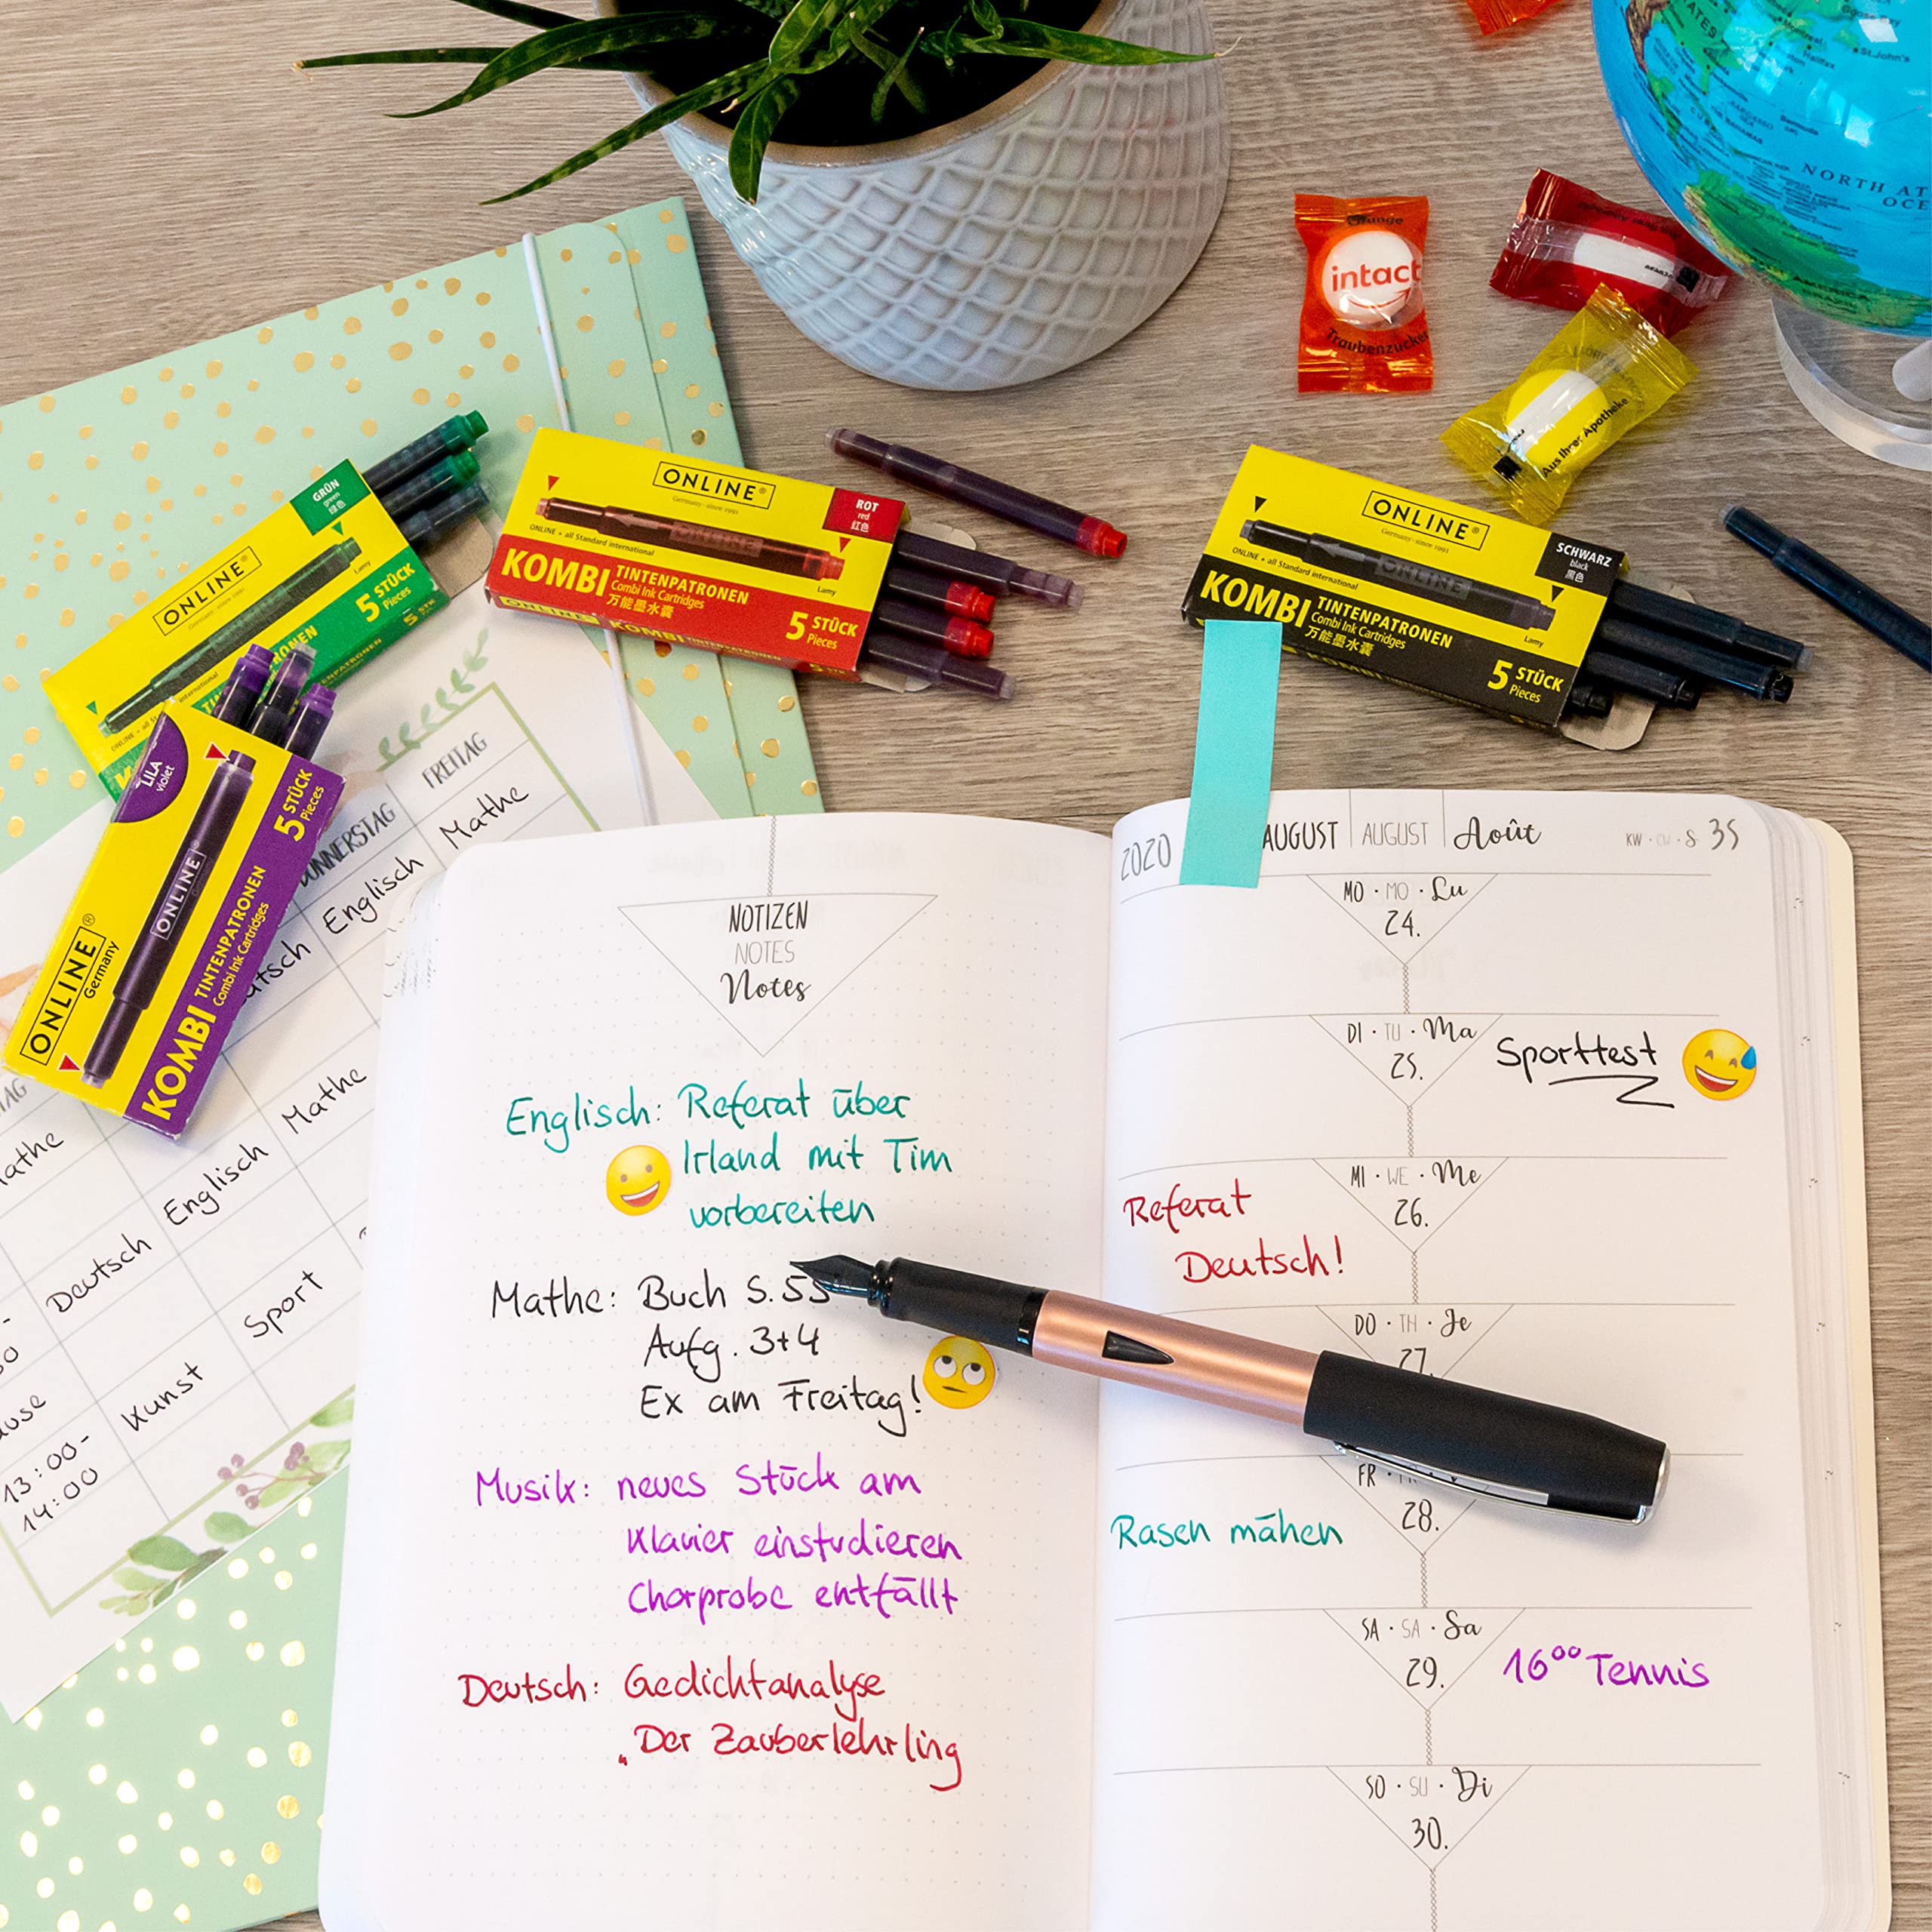 STATES
St.John's
Halifax
Bermuda
NORTH AT
OCE
Orange
intact
Traubenzucker
Aus Ihrer Apotheke
GRÜN
green
绿色
ONLINE®
Germany · since 1991
ONLINE + all Standard international
Lamy
5 STÜCK
Pieces
ONLINE®
Germany · since 1991
ROT
red
红色
ONLINE + all Standard international
Lamy
KOMBI TINTENPATRONEN
Combi Ink Cartridges
万能墨水囊
5 STÜCK
Pieces
ONLINE KOMBI TINTENPATRONEN
ONLINE®
Germany · since 1991
SCHWARZ
black
黑色
ONLINE + all Standard international
ONLINE
Lamy
KOMBI TINTENPATRONEN
Combi Ink Cartridges
万能墨水囊
5 STÜCK
Pieces
LILA
violet
ONLINE
5 STÜCK
Pieces
ONLINE®
Germany
KOMBI TINTENPATRONEN
Combi Ink Cartridges
FREITAG
Mathe
Englisch
Mathe
Englisch
Deutsch
Sport
Kunst
13:00-
14:00
NOTIZEN
NOTES
Notes
Englisch: Referat über
Irland mit Tim
vorbereiten
Mathe: Buch S. 55
Aufg. 3+4
Ex am Freitag!
Musik: neues Stück am
Klavier einstudieren
Chorprobe entfällt
Deutsch: Gedichtanalyse
„Der Zauberlehrling
2020 AUGUST AUGUST Août KW · CW · S 35
MO · MO · Lu
24.
DI · TU · Ma
25.
Sporttest
MI · WE · Me
26.
Referat
Deutsch!
DO · TH · Je
27.
FR
28.
Rasen mähen
SA · SA · Sa
29.
16⁰⁰ Tennis
SO · SU · Di
30.